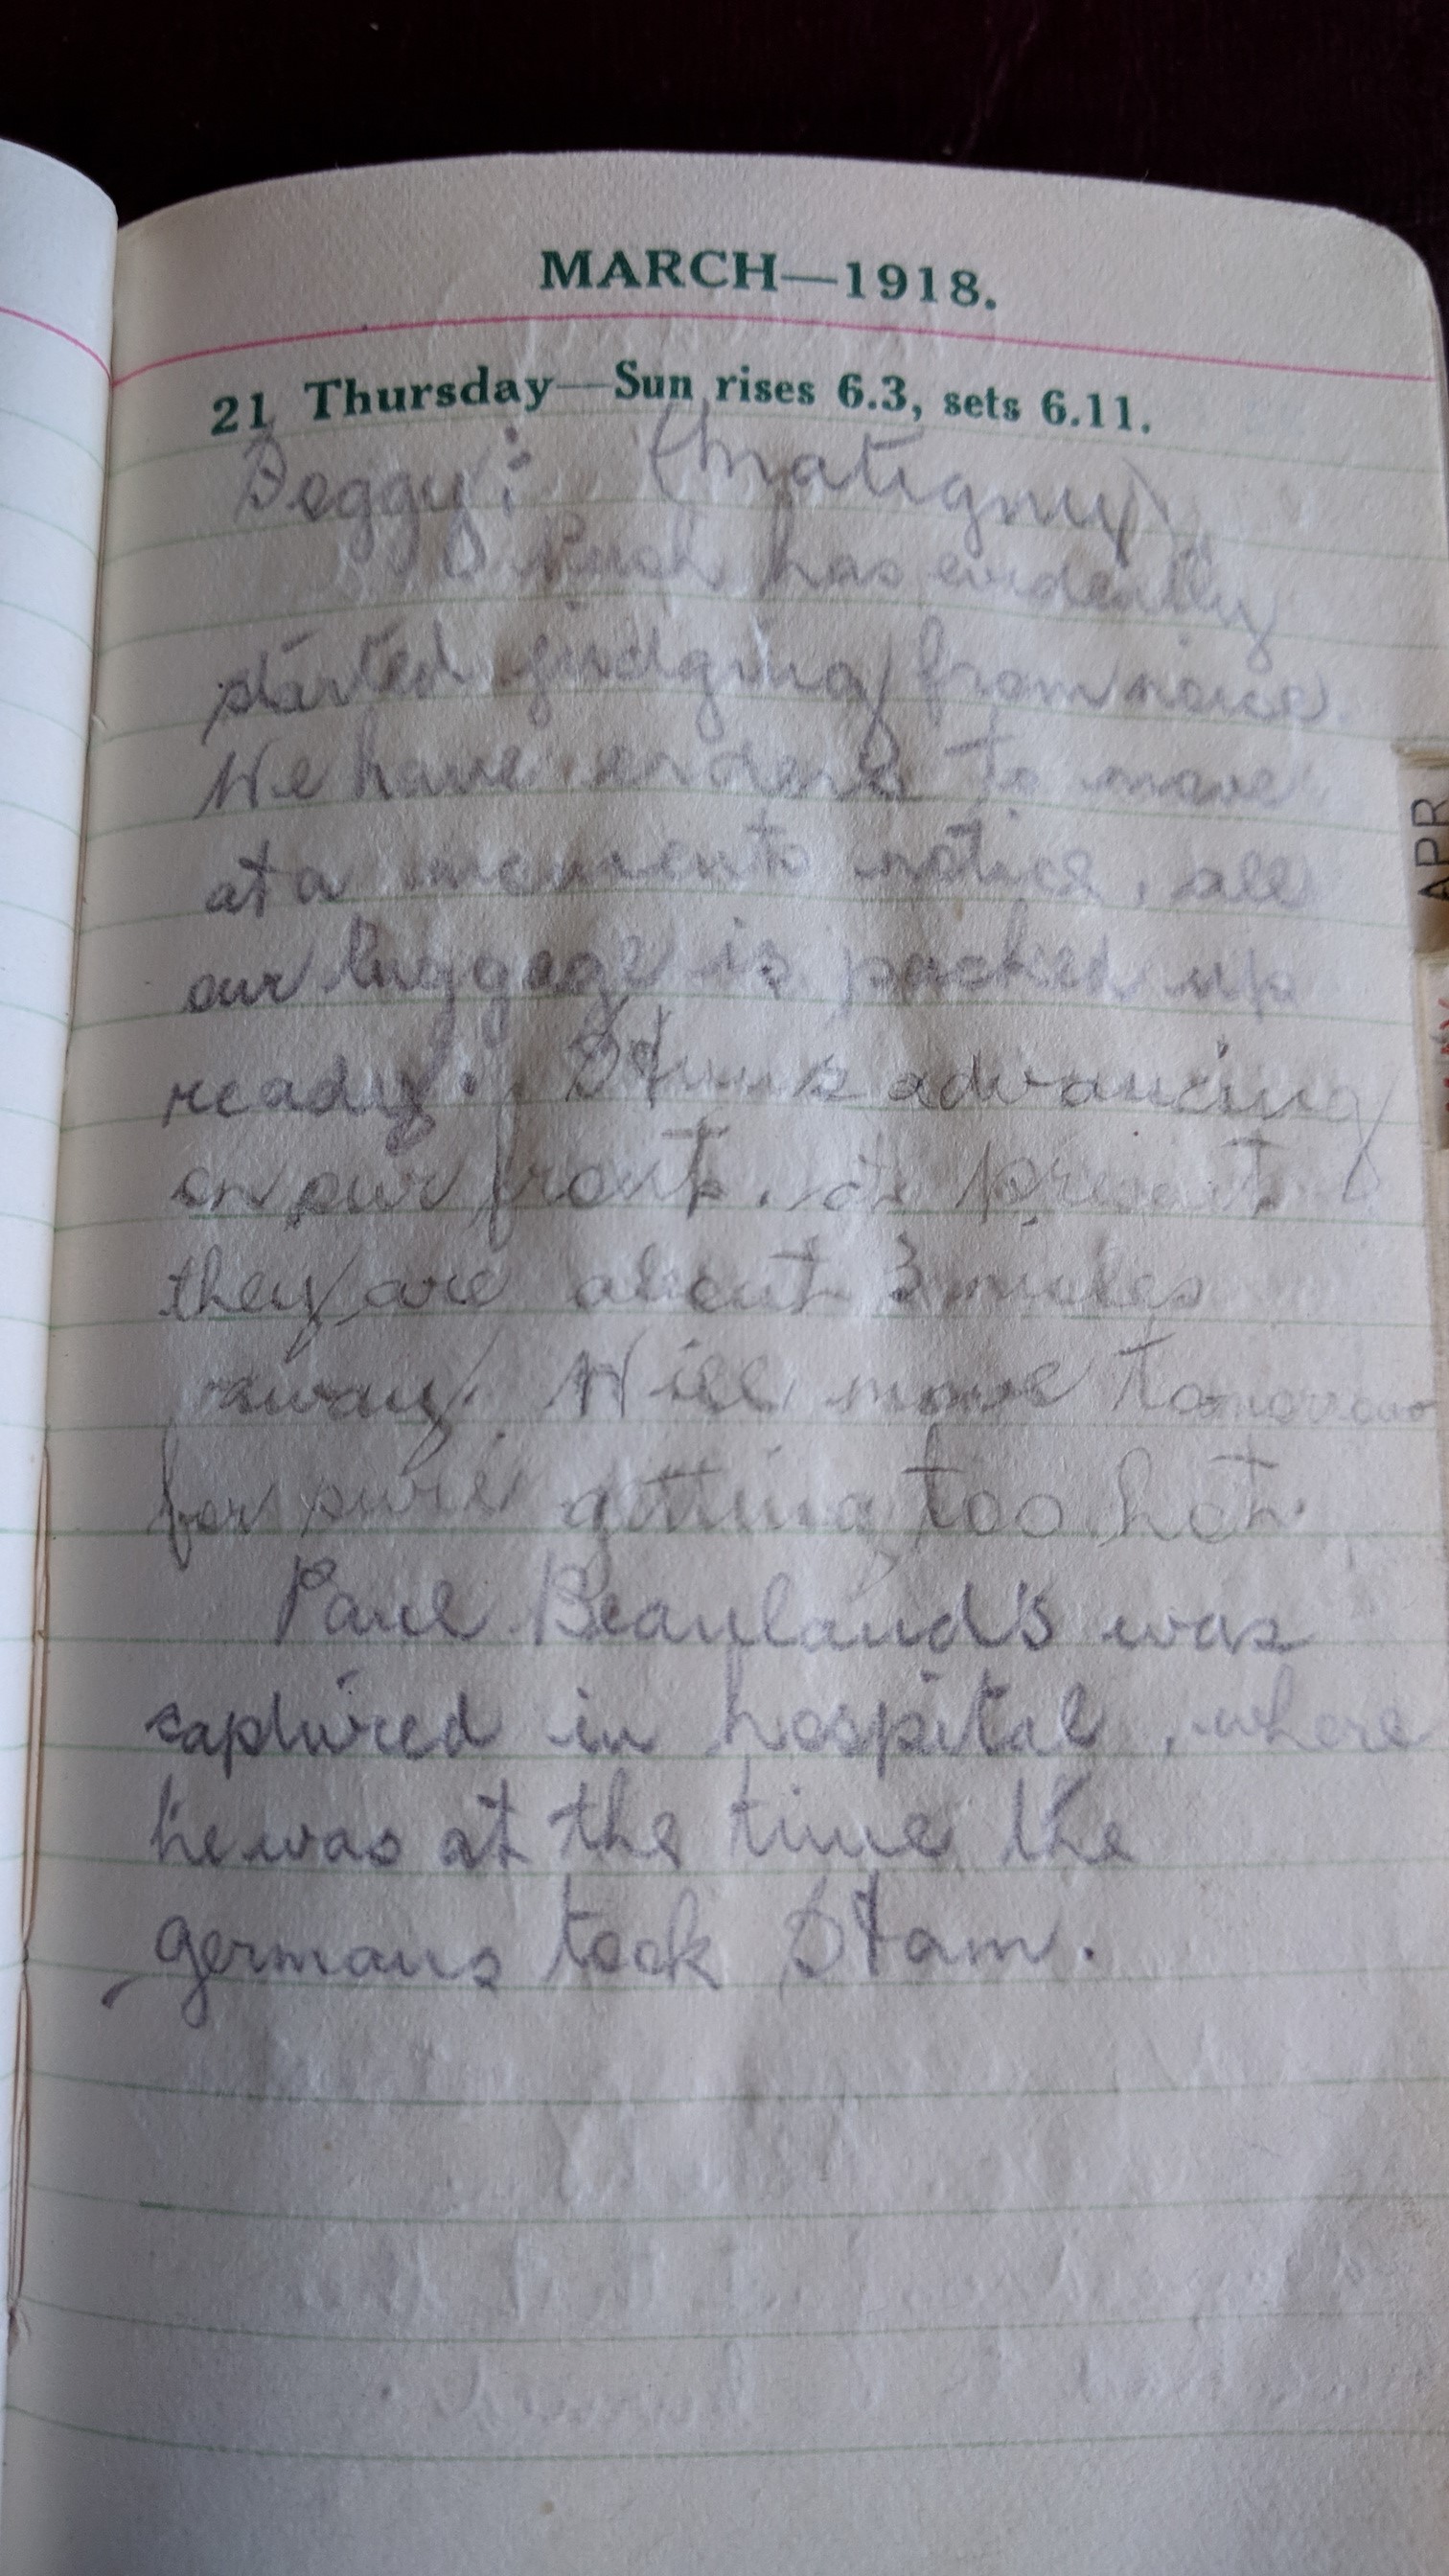 MARCH—1918.
21 Thursday—Sun rises 6.3, sets 6.11.
Peggy: (Matigny)
Push has evidently
started judging from noise.
We have orders to move
at a moments notice, all
our luggage is packed up
ready. Huns advancing
on our front. at present
they are about 3 miles
away. Will move tomorrow
for sure getting too hot.
Paul Beauland's was
captured in hospital, where
he was at the time the
germans took Ham.
APR